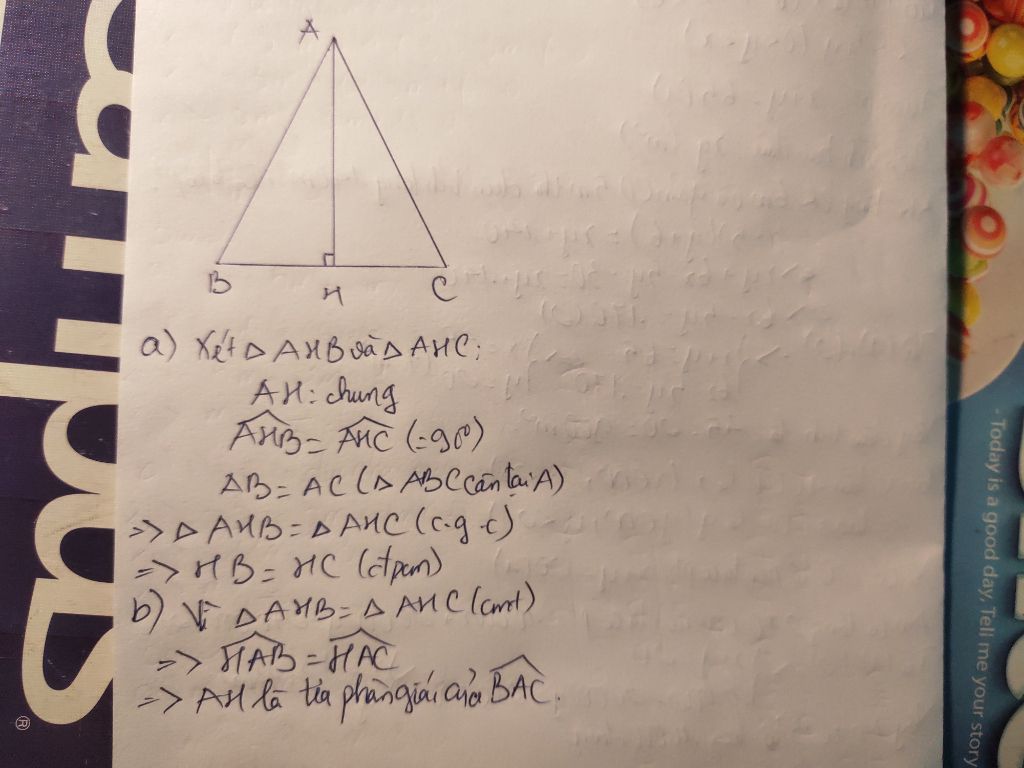 A
B
H
C
a) Xét △ AHB và △ AHC:
AH: chung
\widehat{AHB} = \widehat{AHC} (=90°)
AB = AC (△ ABC cân tại A)
=> △ AHB = △ AHC (c.g.c)
=> HB = HC (đpcm)
b) Vì △ AHB = △ AHC (cmt)
=> \widehat{HAB} = \widehat{HAC}
=> AH là tia phân giác của \widehat{BAC}.
®
· Today is a good day. Tell me your story